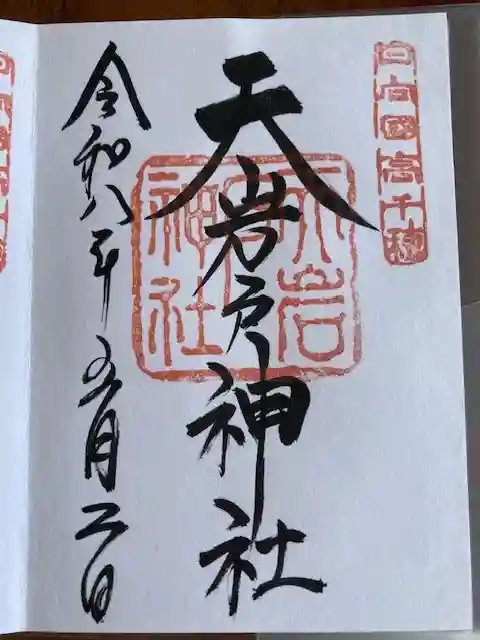 日向國高千穂
天岩戸神社
天岩戸神社
令和八年五月二日